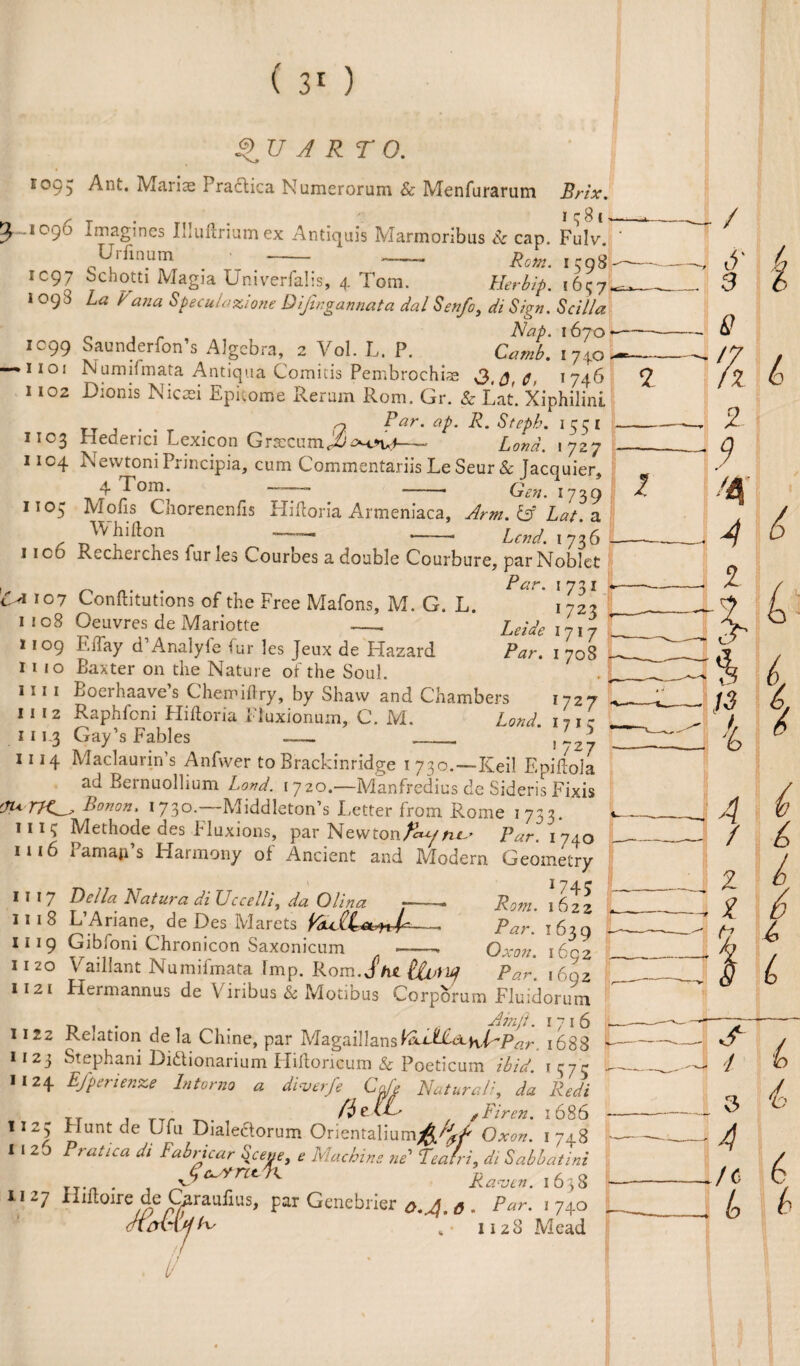 ( 31 )
QUARTO.
1095 Ant. Mariæ Practica Numerorum & Mensurarum Brix.
1581 / 
1096 Imagines Illustrium ex Antiquis Marmoribus & cap. Fulv.
Ursinum —— —— Rom. 1598 5 6
1097 Schotti Magia Universalis, 4 Tom. Herbip. 1657 3 6
1098 La Vana Speculazione Disingannata dal Senso, di Sign. Scilla
Nap. 1670 8
1099 Saunderson's Algebra, 2 Vol. L. P. Camb. 1740 17
1101 Numismata Antiqua Comitis Pembrochiæ 3.0,0, 1746 2 12 6
1102 Dionis Nicæi Epitome Rerum Rom. Gr. & Lat. Xiphilini
Par. ap. R. Steph. 1551 2
1103 Hederici Lexicon Græcum —— Lond. 1727 9
1104 Newtoni Principia, cum Commentariis Le Seur & Jacquier,
4 Tom. —— —— Gen. 1739 1 14
1105 Mosis Chorenensis Historia Armeniaca, Arm. & Lat. a
Whiston —— —— Lond. 1736 4 6
1106 Recherches sur les Courbes a double Courbure, par Noblet
Par. 1731 2
1107 Constitutions of the Free Masons, M. G. L. 1723 2 6
1108 Oeuvres de Mariotte —— Leide 1717
1109 Essay d'Analyse sur les Jeux de Hazard Par. 1708
1110 Baxter on the Nature of the Soul.
1111 Boerhaave's Chemistry, by Shaw and Chambers 1727 13
1112 Raphsoni Historia Fluxionum, C. M. Lond. 1715
1113 Gay's Fables —— —— 1727
1114 Maclaurin's Answer to Brackinridge 1730.—Keil Epistola
ad Bernuollium Lond. 1720.—Manfredius de Sideris Fixis
Bonon. 1730.—Middleton's Letter from Rome 1733. 4 6
1115 Methode des Fluxions, par Newton Par. 1740 1 6
1116 Pamap's Harmony of Ancient and Modern Geometry
1745 2 6
1117 Della Natura di Uccelli, da Olina —— Rom. 1622
1118 L'Ariane, de Des Marets Vaillant—— Par. 1639
1119 Gibsoni Chronicon Saxonicum —— Oxon. 1692
1120 Vaillant Numismata Imp. Rom. Par. 1692 8 6
1121 Hermannus de Viribus & Motibus Corporum Fluidorum
Amst. 1716
1122 Relation de la Chine, par Magaillans Vaillant Par. 1688
1123 Stephani Dictionarium Historicum & Poeticum ibid. 1575 1 6
1124 Esperienze Intorno a diverse Cose Naturali, da Redi
Firen. 1686 3 6
1125 Hunt de Usu Dialectorum Orientalium Oxon. 1748 4
1126 Pratica di Fabricar Scene, e Machine ne' Teatri, di Sabbatini
Raven. 1638 10 6
1127 Histoire de Caraufius, par Genebrier 0.4.0. Par. 1740 6 6
1128 Mead